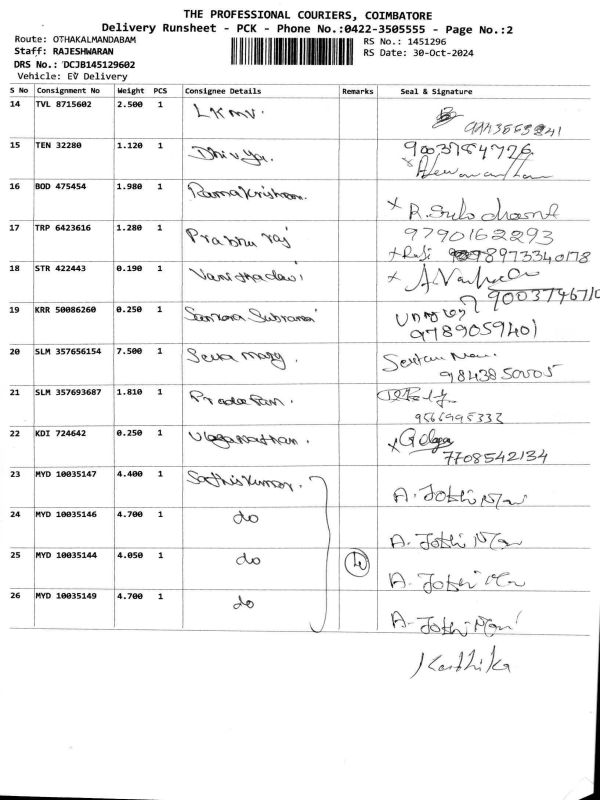 THE PROFESSIONAL COURIERS, COIMBATORE
Delivery Runsheet - PCK - Phone No.:0422-3505555 - Page No.:2
Route: OTHAKALMANDABAM
RS No.: 1451296
Staff: RAJESHWARAN
RS Date: 30-Oct-2024
DRS No.: DCJB145129602
Vehicle: EV Delivery
S No Consignment No Weight PCS Consignee Details Remarks Seal & Signature
14 TVL 8715602 2.500 1
15 TEN 32280 1.120 1 Dhivya.
9003784726
16 BOD 475454 1.980 1 Ramakrishnan.
17 TRP 6423616 1.280 1 Prabhu raj
9790162293
18 STR 422443 0.190 1
8973340178
19 KRR 50086260 0.250 1
9789059401
20 SLM 357656154 7.500 1
9843850005
21 SLM 357693687 1.810 1
9566995333
22 KDI 724642 0.250 1
7708542134
23 MYD 10035147 4.400 1 Sathiskumar. A. Jothi Mani
24 MYD 10035146 4.700 1 do A. Jothi Mani
25 MYD 10035144 4.050 1 do A. Jothi Mani
26 MYD 10035149 4.700 1 do A. Jothi Mani
Karthika